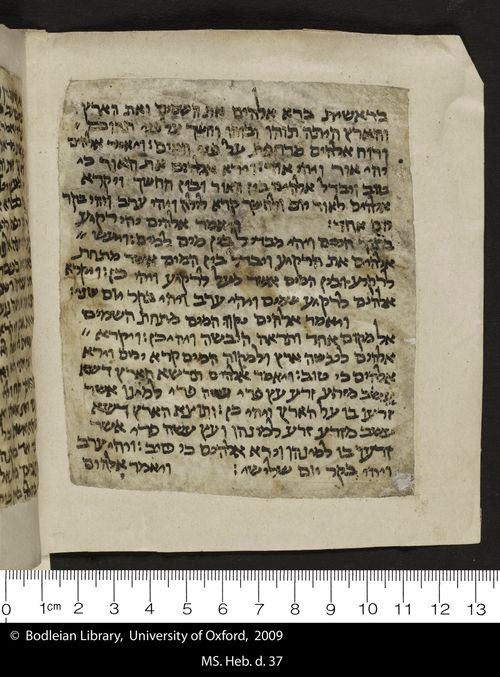 בראשית ברא אלהים את השמים ואת הארץ
והארץ היתה תוהו ובוהו וחשך על פני תהום
ורוח אלהים מרחפת על פני המים: ויאמר אלהים
יהי אור ויהי אור: וירא אלהים את האור כי
טוב ויבדל אלהים בין האור ובין החשך ויקרא
אלהים לאור יום ולחשך קרא לילה ויהי ערב ויהי בקר
יום אחד: ויאמר אלהים יהי רקיע
בתוך המים ויהי מבדיל בין מים למים: ויעש
אלהים את הרקיע ויבדל בין המים אשר מתחת
לרקיע ובין המים אשר מעל לרקיע ויהי כן: ויקרא
אלהים לרקיע שמים ויהי ערב ויהי בקר יום שני:
ויאמר אלהים יקוו המים מתחת השמים
אל מקום אחד ותראה היבשה ויהי כן: ויקרא
אלהים ליבשה ארץ ולמקוה המים קרא ימים וירא
אלהים כי טוב: ויאמר אלהים תדשא הארץ דשא
עשב מזריע זרע עץ פרי עשה פרי למינו אשר
זרעו בו על הארץ ויהי כן: ותוצא הארץ דשא
עשב מזריע זרע למינהו ועץ עשה פרי אשר
זרעו בו למינהו וירא אלהים כי טוב: ויהי ערב
ויהי בקר יום שלישי: ויאמר אלהים
0 1cm 2 3 4 5 6 7 8 9 10 11 12 13
© Bodleian Library, University of Oxford, 2009
MS. Heb. d. 37